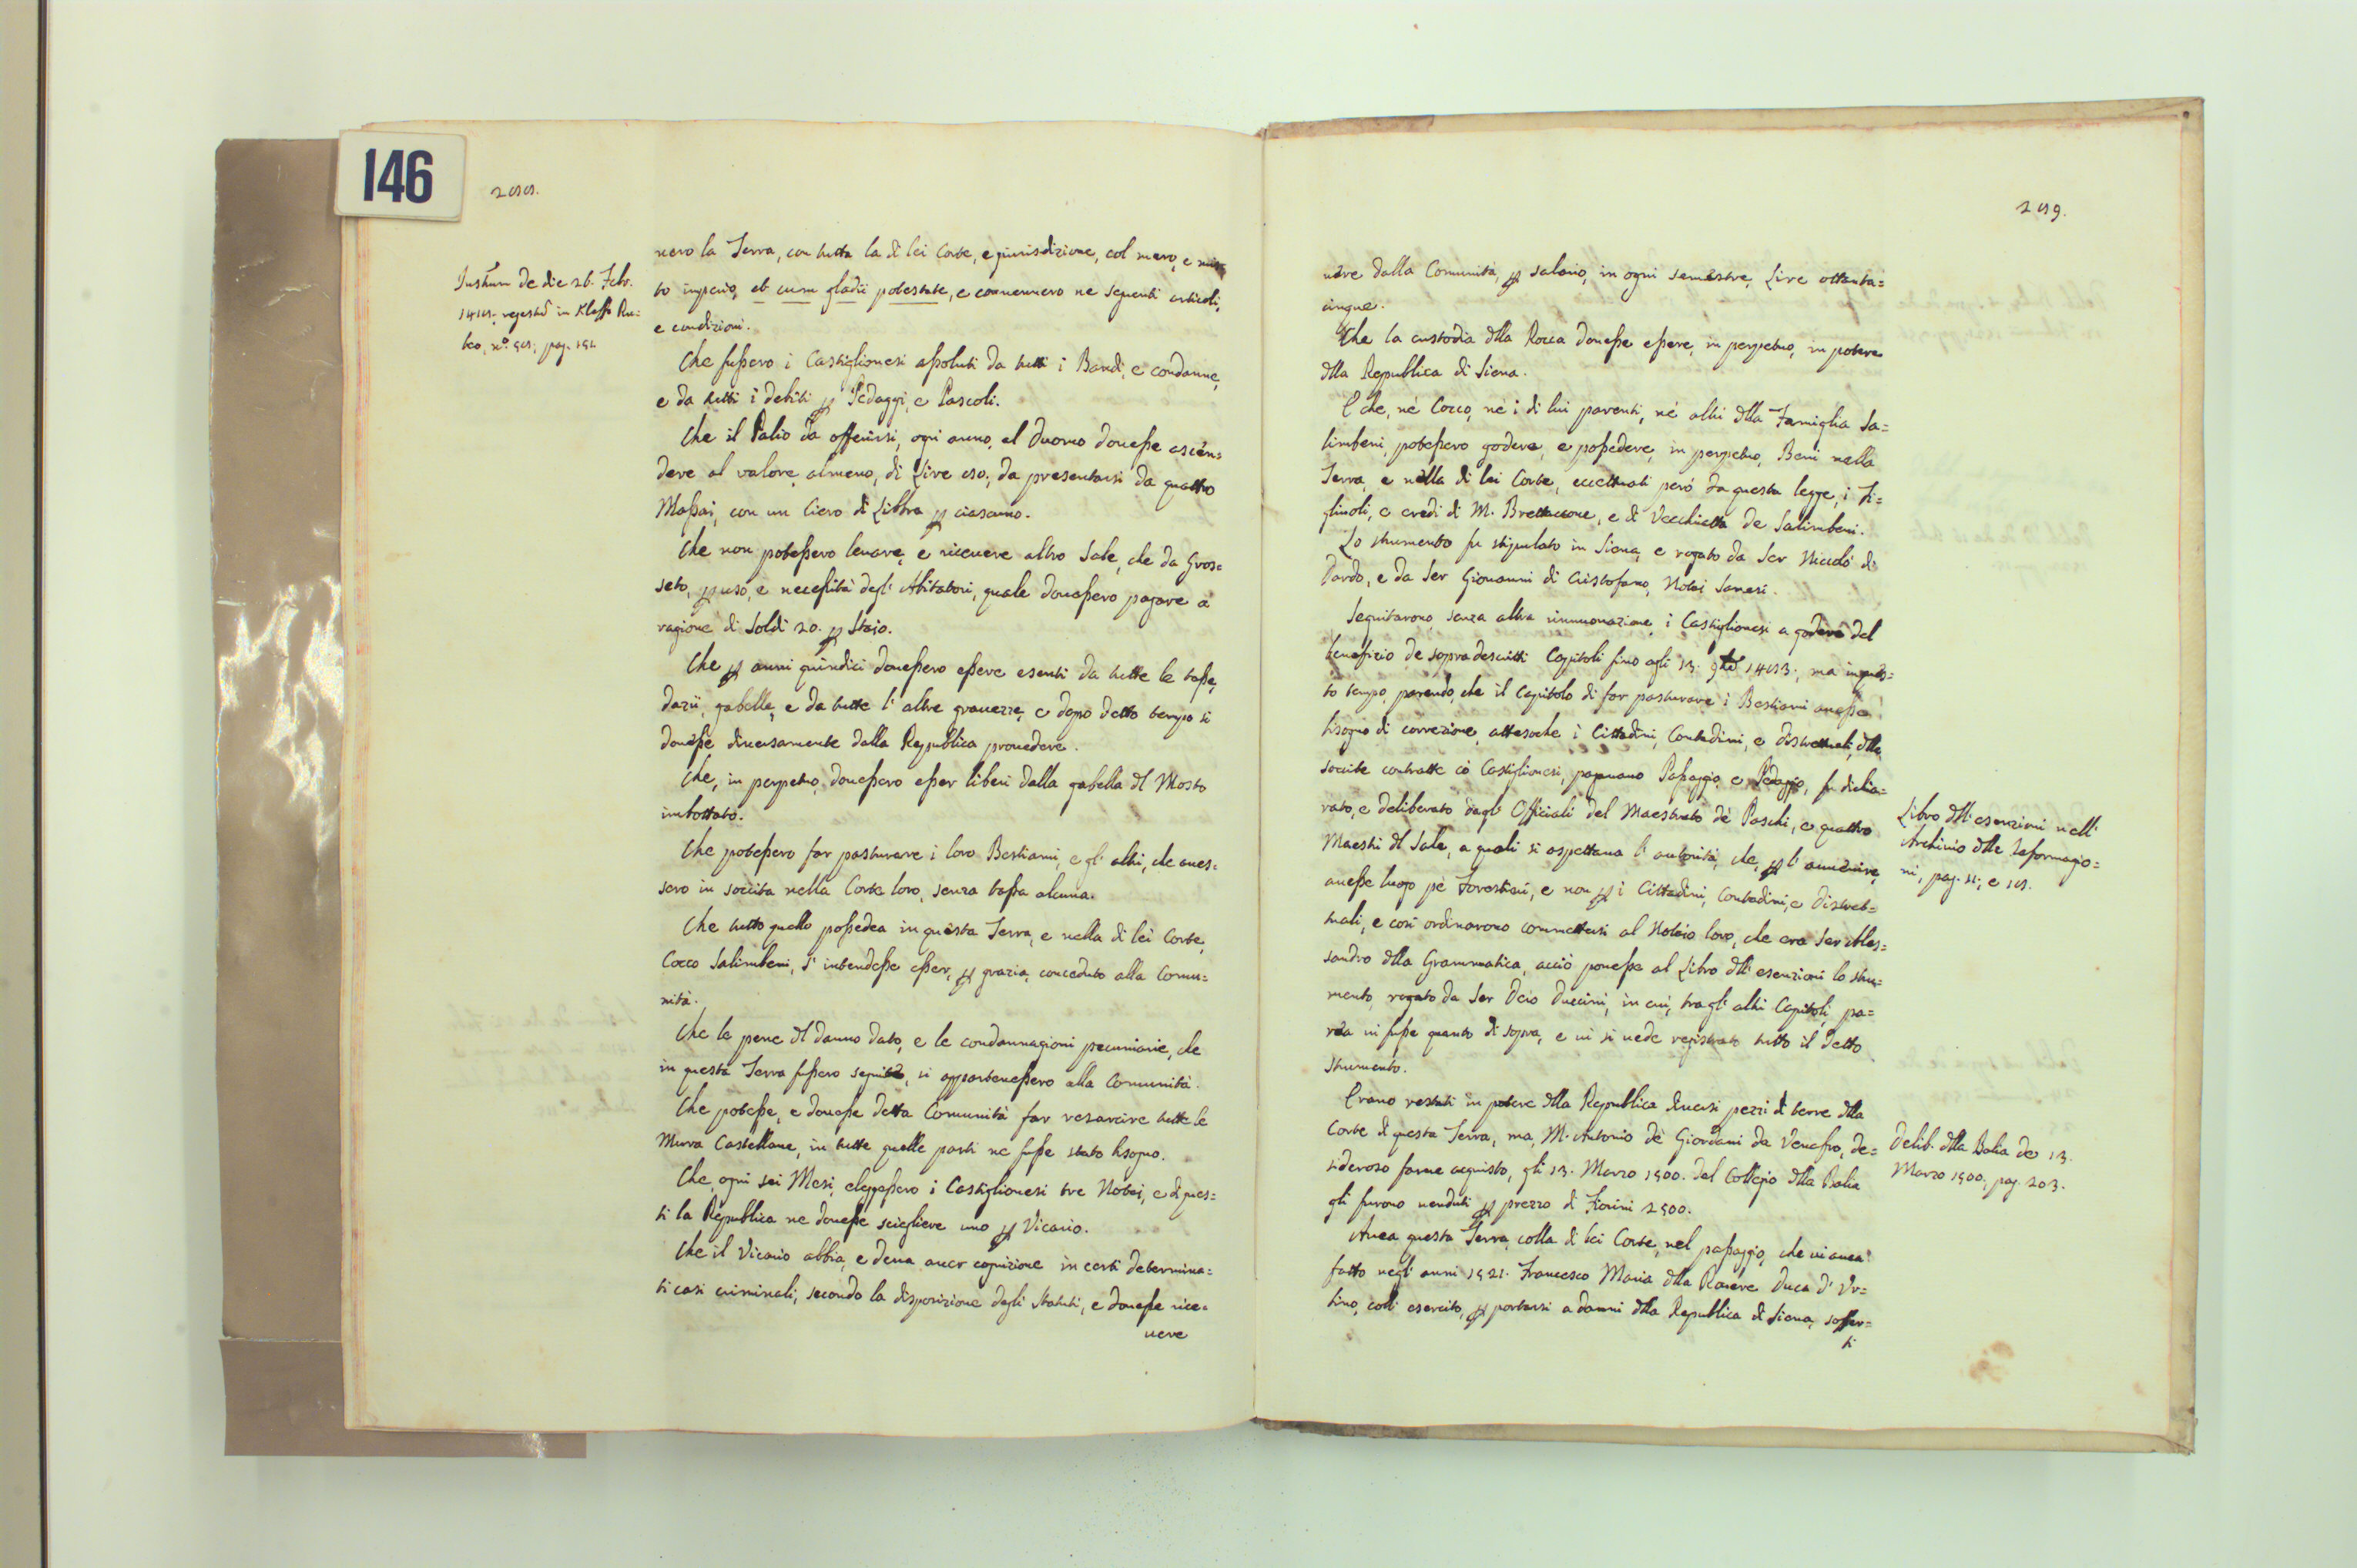 146
288.
Instrum de die 26. Febr.
1418. regestr in Kleffo Ru=
beo, n.º 98, pag. 191.
nero la Terra, con tutta la di lei Corte, e giurisdizione, col mero, e mis=
to imperio, et cum gladii potestate, e convennero ne seguenti articoli,
e condizioni.
Che fussero i Castiglionesi assoluti da tutti i Bandi, e condanne,
e da tutti i debiti p Pedaggi, e Pascoli.
Che il Palio da offerirsi, ogni anno, al Duomo douesse ascen=
dere al valore, almeno, di Lire 80, da presentarsi da quattro
Massai, con un Ciero di Libbra p ciascuno.
Che non potessero leuare, e riceuere altro Sale, che da Gros=
seto, p uso, e necessità degl' Abitatori, quale douessero pagare a
ragione di Soldi 20. p Staio.
Che p anni quindici douessero essere esenti da tutte le tasse,
dazii, gabelle, e da tutte l' altre grauezze, e dopo detto tempo si
douesse diuersamente dalla Republica prouedere.
Che, in perpetuo, douessero esser liberi dalla gabella dl Mosto
imbottato.
Che potessero far pasturare i loro Bestiami, e gl' altri, che aues=
sero in soccita nella Corte loro, senza tassa alcuna.
Che tutto quello possedea in questa Terra, e nella di lei Corte,
Cocco Salimbeni, s' intendesse esser, p grazia, conceduto alla Comu=
nità.
Che le pene dl danno dato, e le condannagioni pecuniarie, che
in questa Terra fussero seguite, si appartenessero alla Comunità.
Che potesse, e douesse detta Comunità far resarcire tutte le
Mura Castellane, in tutte quelle parti ne fusse stato bisogno.
Che, ogni sei Mesi, eleggessero i Castiglionesi tre Notai, e di ques=
ti la Republica ne douesse sciegliere uno p Vicario.
Che il Vicario abbia, e deua auer cognizione in certi determina=
ti casi criminali, secondo la disposizione degli Statuti, e douesse rice=
uere
289.
uere dalla Comunità, p salario, in ogni semestre, Lire ottanta=
cinque.
Che la custodia dlla Rocca douesse essere, in perpetuo, in potere
dlla Republica di Siena.
E che, nè Cocco, nè i di lui parenti, nè altri dlla Famiglia Sa=
limbeni, potessero godere, e possedere, in perpetuo, Beni nella
Terra, e nella di lei Corte, eccettuati però da questa legge, i Fi=
gliuoli, e eredi di M. Brettacone, e di Vecchietta de Salimbeni.
Lo strumento fu stipulato in Siena, e rogato da Ser Niccolò di
Dardo, e da Ser Giouanni di Cristofano, Notai Sanesi.
Seguitarono, senza altra innuouazione, i Castiglionesi a godere del
beneficio de sopradescritti Capitoli fino agli 13. 1483., ma in ques=
to tempo, parendo, che il Capitolo di far pasturare i Bestiami auesse
bisogno di correzione, attesoche i Cittadini, Contadini, e distrettuali, dlle
soccite contratte cò Castiglionesi, pagauano Passaggio, e Pedaggio, fu dichia=
rato, e deliberato dagl' Officiali del Maestrato dè Paschi, e quattro
Maestri dl Sale, a quali si aspettaua l' autorità, che, p l' auuenire,
auesse luogo pè Forestieri, e non p i Cittadini, Contadini, e Distret=
tuali, e così ordinarono commettersi al Notaio loro, che era Ser Ales=
sandro dlla Grammatica, acciò ponesse al Libro dll' esenzioni lo stru=
mento, rogato da Ser Duccini, in cui, tra gl' altri Capitoli, pa=
rea vi fusse quanto di sopra, e vi si uede registrato tutto il detto
strumento.
Erano restati in potere dlla Republica diuersi pezzi di terre dlla
Corte di questa Terra, ma, M. Antonio dè Giordani da Venafro, de=
sideroso farne acquisto, gli 13. Marzo 1500. dal Collegio dlla Balia
gli furono uenduti p prezzo di Fiorini 2500.
Auea questa Terra, colla di lei Corte, nel passaggio, che ui auea
fatto negl' anni 1521. Francesco Maria dlla Rouere Duca d' Ur=
bino, coll' esercito, p portarsi a danni dlla Republica di Siena, soffer=
ti
Libro dll' esenzioni nell'
Archiuio dlle Riformagio=
ni, pag. 11, e 18.
Delib. dlla Balia de 13.
Marzo 1500, pag. 203.